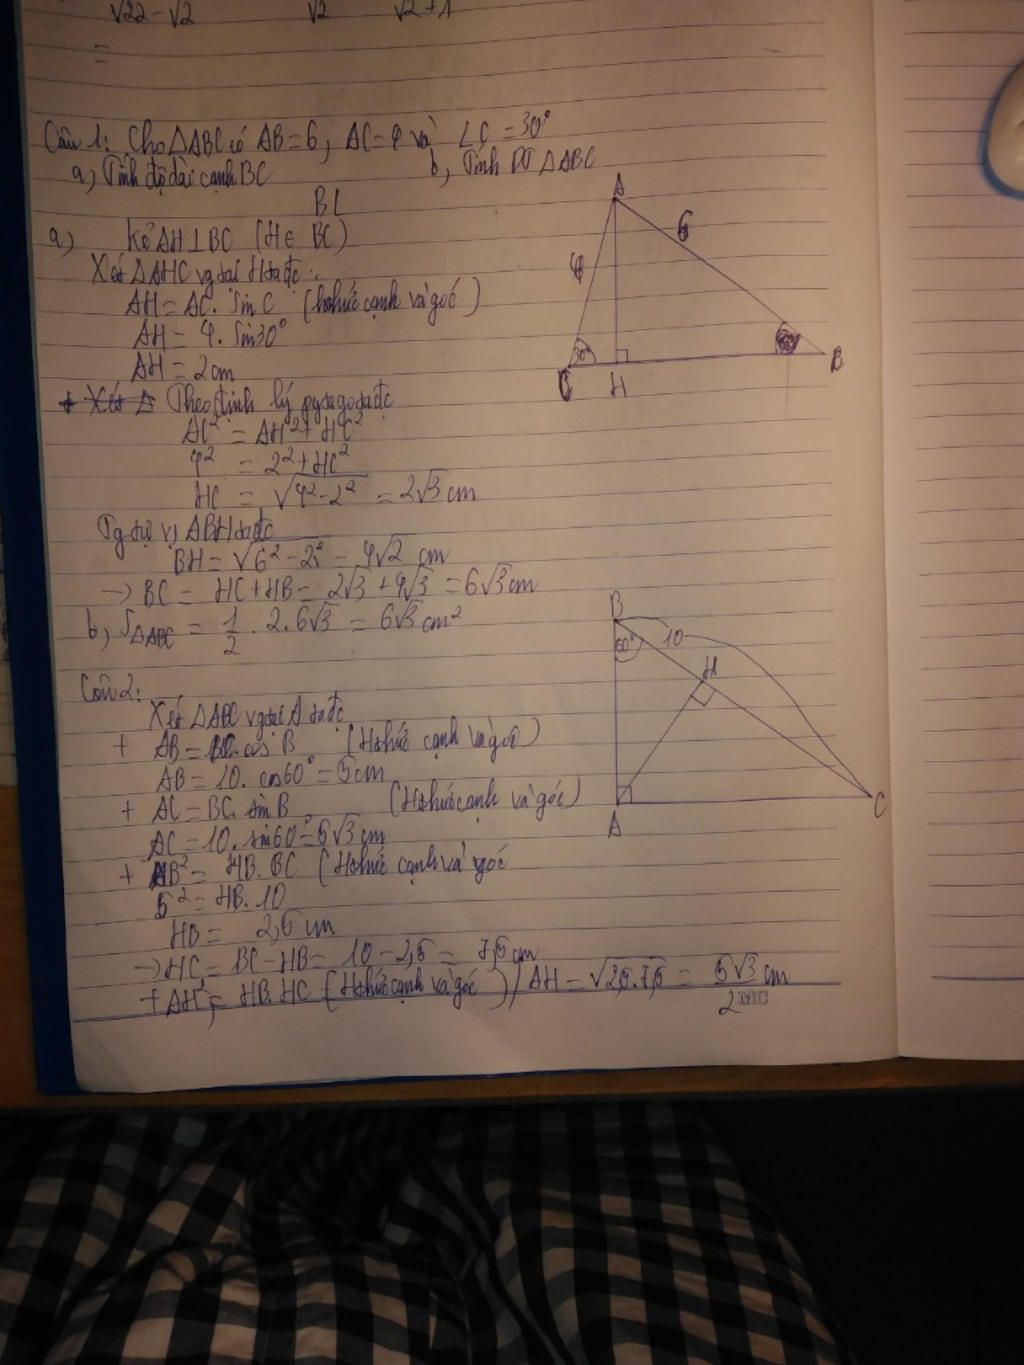 √22-√2 √2 √2+1
=
Câu 1: Cho △ABC có AB=6, AC=4 và ∠C=30°
a, Tính độ dài cạnh BC b, Tính DT △ABC
BL
a) Kẻ AH⊥BC (H∈BC)
Xét △AHC vg tại H ta đc:
AH=AC.sin C (hệ thức cạnh và góc)
AH=4.sin30°
AH=2cm
Theo định lý pytago ta đc
AC²=AH²+HC²
4²=2²+HC²
HC=√4²-2²=2√3cm
Tg tự vs ABH ta đc
BH=√6²-2²=4√2 cm
→BC=HC+HB=2√3+4√3=6√3cm
b, S△ABC=1/2.2.6√3=6√3cm²
A
6
4
30°
C H B
Câu 2:
Xét △ABC vg tại A ta đc
+ AB=BC.cos B (Hệ thức cạnh và góc)
AB=10.cos60°=5cm
+ AC=BC.sin B (Hệ thức cạnh và góc)
AC=10.sin60°=5√3cm
+ AB²=HB.BC (Hệ thức cạnh và góc
5²=HB.10
HB=2,5cm
→HC=BC-HB=10-2,5=7,5cm
+AH²=HB.HC (Hệ thức cạnh và góc) AH=√2,5.7,5=5√3/2cm
B
60° 10
H
A C